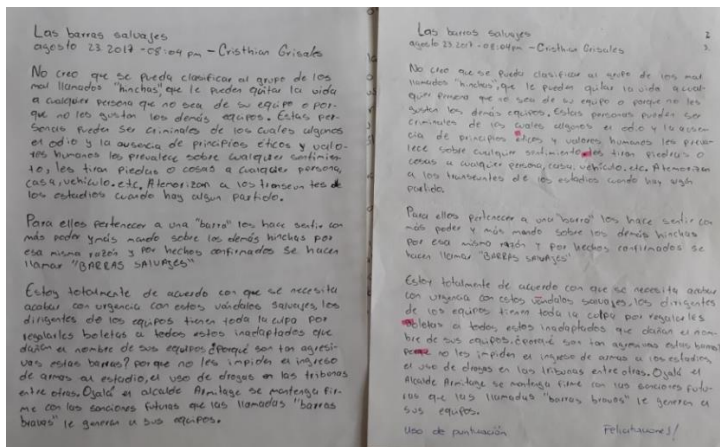 Las barras salvajes
agosto 23 2017 - 08:04 pm - Cristhian Grisales
No creo que se pueda clasificar al grupo de los
mal llamados "hinchas", que le pueden quitar la vida
a cualquier persona que no sea de su equipo o por-
que no les gustan los demás equipos. Estas per-
sonas pueden ser criminales de los cuales algunos
el odio y la ausencia de principios éticos y valo-
res humanos les prevalece sobre cualquier sentimien-
to, les tiran piedras o cosas a cualquier persona,
casa, vehículo, etc. Atemorizan a los transeuntes de
los estadios cuando hay algun partido.
Para ellos pertenecer a una "barra" los hace sentir con
más poder y más mando sobre los demás hinchas por
esa misma razón y por hechos confirmados se hacen
llamar "BARRAS SALVAJES"
Estoy totalmente de acuerdo con que se necesita
acabar con urgencia con estos vándalos salvajes, los
dirigentes de los equipos tienen toda la culpa por
regalarles boletas a todos estos inadaptados que
dañan el nombre de sus equipos ¿Porqué son tan agresi-
vas estas barras? Porque no les impiden el ingreso
de armas al estadio, el uso de drogas en las tribunas
entre otras. Ojalá el alcalde Armitage se mantenga fir-
me con las sanciones futuras que las llamadas "barras
bravas" le generan a sus equipos.
Las barras salvajes
agosto 23 2017 - 08:04 pm - Cristhian Grisales
No creo que se pueda clasificar al grupo de los mal
llamados "hinchas", que le pueden quitar la vida a cual-
quier persona que no sea de su equipo o porque no les
gusten los demás equipos. Estas personas pueden ser
criminales de los cuales algunos el odio y la ausen-
cia de principios éticos y valores humanos les preva-
lece sobre cualquier sentimiento, les tiran piedras o
cosas a cualquier persona, casa, vehículo, etc. Atemorizan
a los transeuntes de los estadios cuando hay algún
partido.
Para ellos pertenecer a una "barra" los hace sentir con
más poder y más mando sobre los demás hinchas
por esa misma razón y por hechos confirmados se
hacen llamar "BARRAS SALVAJES"
Estoy totalmente de acuerdo con que se necesita acabar
con urgencia con estos vándalos salvajes, los dirigentes
de los equipos tienen toda la culpa por regalarles
boletas a todos estos inadaptados que dañan el nom-
bre de sus equipos. ¿porqué son tan agresivas estas barras?
porque no les impiden el ingreso de armas a los estadios,
el uso de drogas en las tribunas entre otras. Ojalá el
Alcalde Armitage se mantenga firme con las sanciones futu-
ras que las llamadas "barras bravas" le generan a
sus equipos.
Uso de puntuación Felicitaciones!